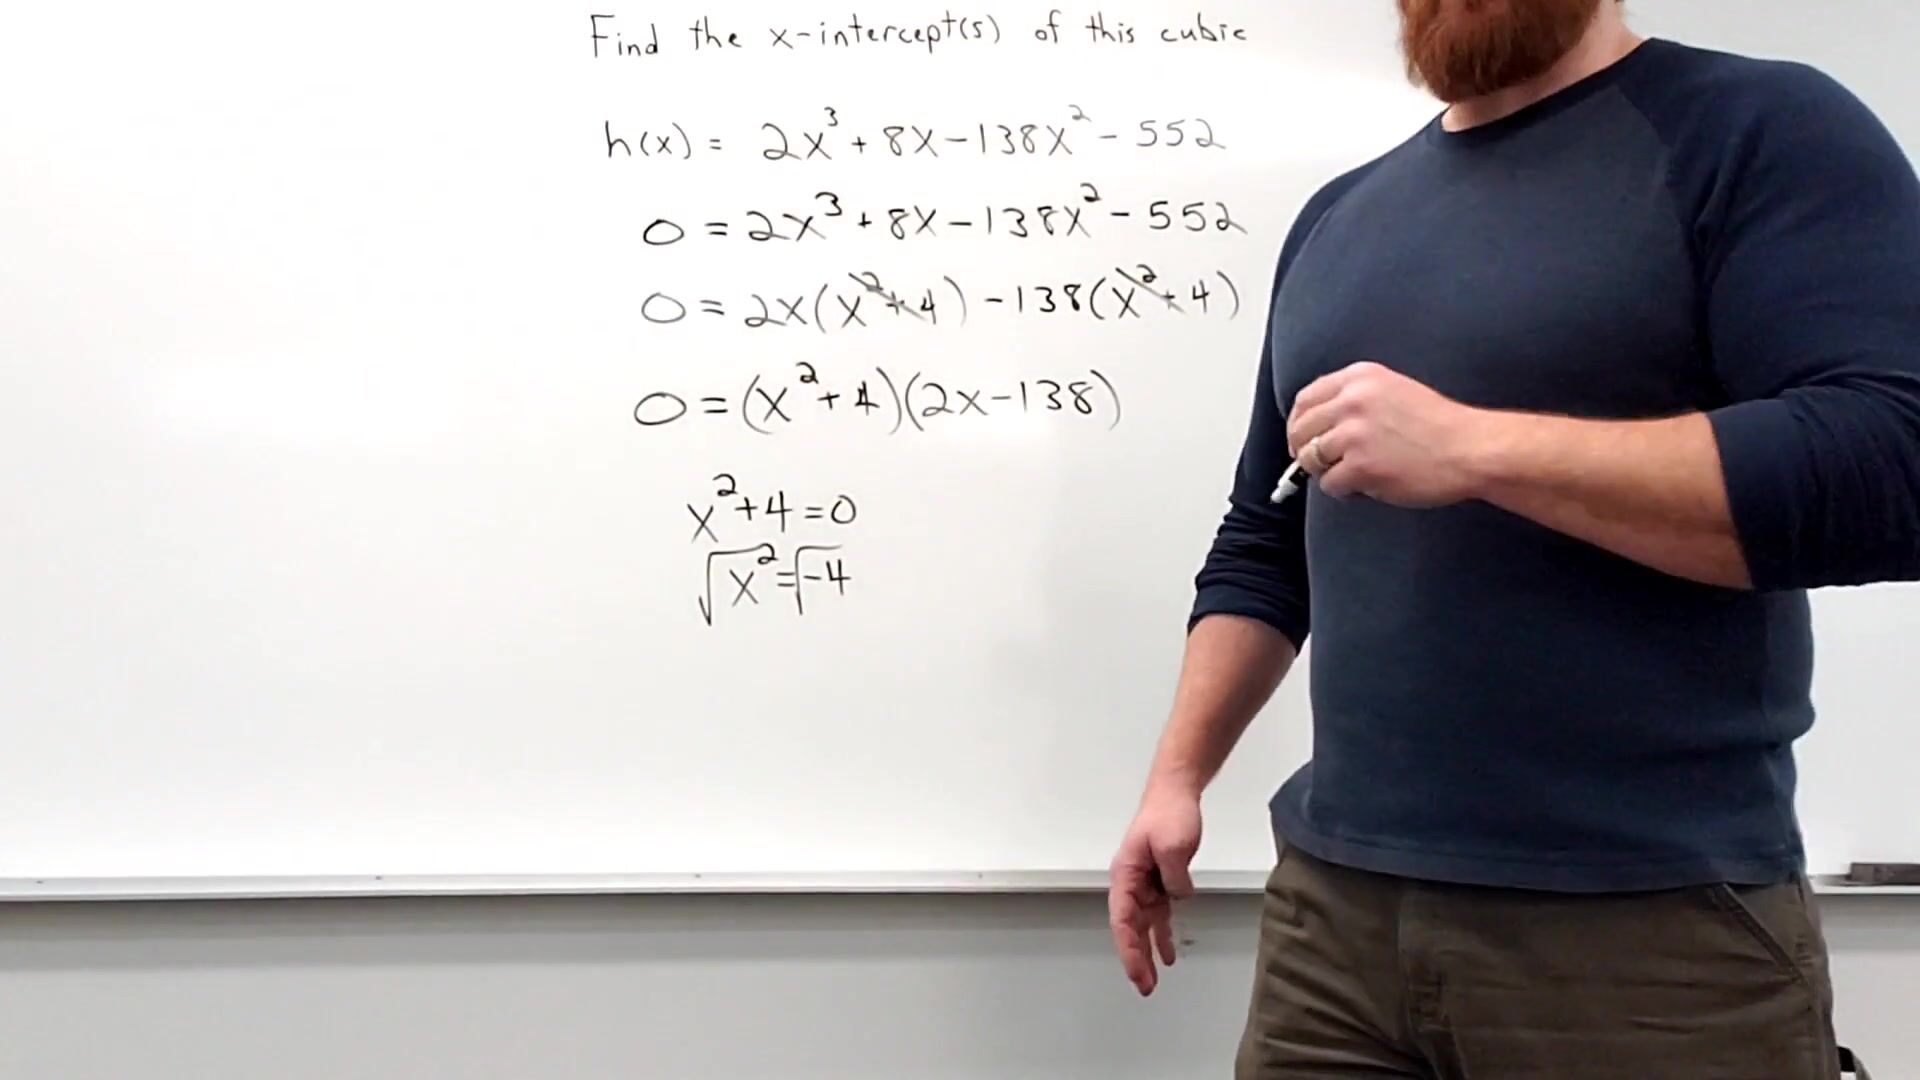 Find the x-intercept(s) of this cubic
h(x) = 2x³ + 8x - 138x² - 552
0 = 2x³ + 8x - 138x² - 552
0 = 2x(x² + 4) - 138(x² + 4)
0 = (x² + 4)(2x - 138)
x² + 4 = 0
√x² = √-4